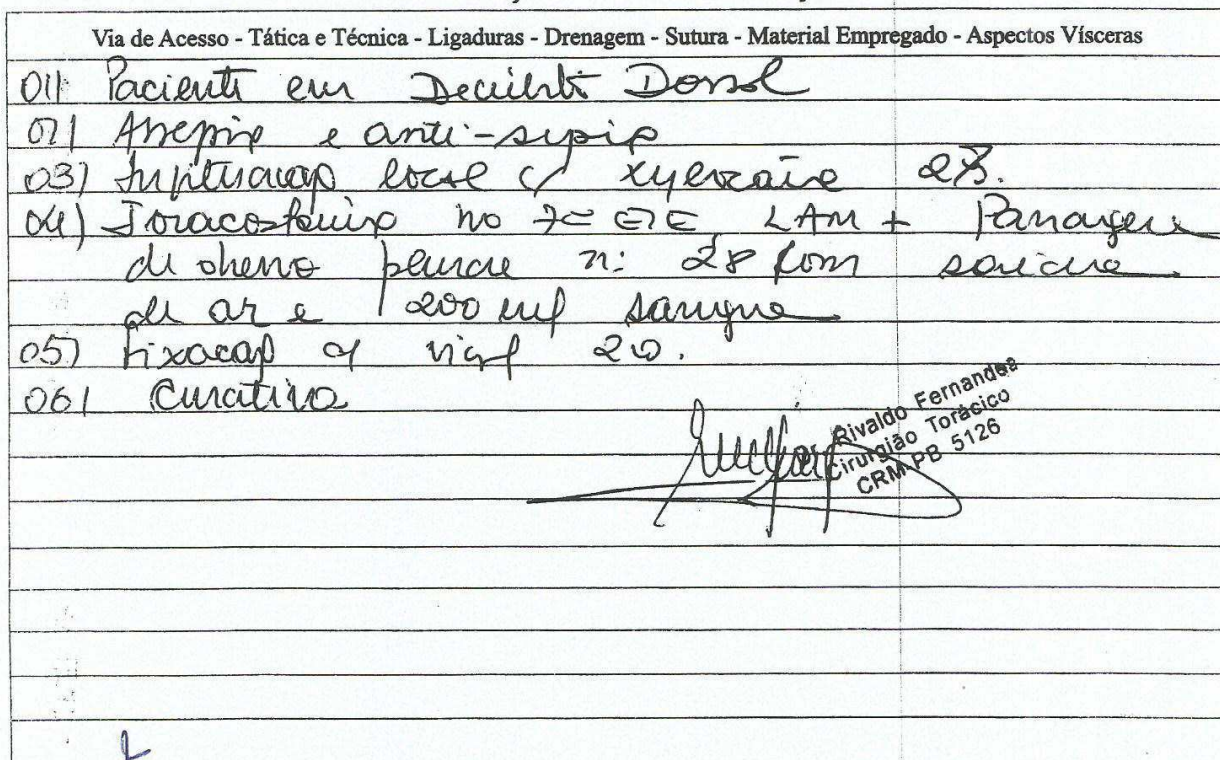 Via de Acesso - Tática e Técnica - Ligaduras - Drenagem - Sutura - Material Empregado - Aspectos Vísceras
01) Paciente em Decúbito Dorsal
02) Assepsia e anti-sepsia
03) Infiltração local c/ xylocaína 2%.
04) Toracostomia no 7º EIE LAM + Passagem
de dreno pleural nº 28 com saída
de ar e 200 ml sangue
05) Fixação c/ 20.
06) Curativo
Rivaldo Fernandes
Cirurgião Torácico
CRM PB 5126